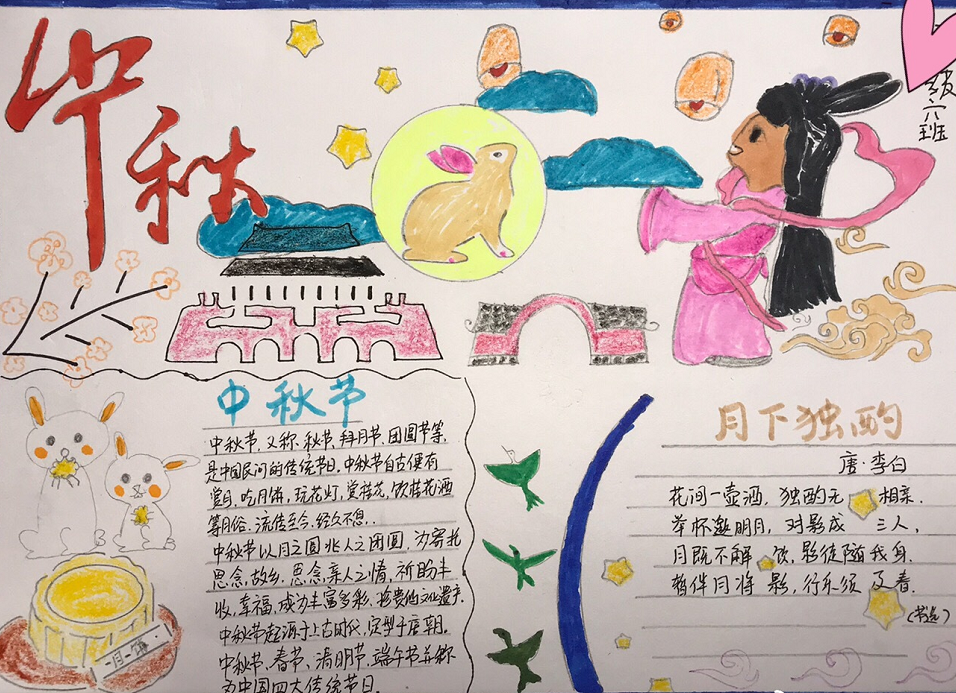 中秋
级六班
中秋节
中秋节,又称秋节、拜月节、团圆节等,
是中国民间的传统节日。中秋节自古便有
赏月、吃月饼、玩花灯、赏桂花、饮桂花酒
等月俗,流传至今,经久不息。
中秋节以月之圆兆人之团圆,为寄托
思念故乡,思念亲人之情,祈盼丰
收、幸福,成为丰富多彩、珍贵的文化遗产。
中秋节起源于上古时代,定型于唐朝。
中秋节、春节、清明节、端午节并称
为中国四大传统节日。
月饼
月下独酌
唐·李白
花间一壶酒,独酌无相亲.
举杯邀明月,对影成三人,
月既不解饮,影徒随我身.
暂伴月将影,行乐须及春.
(节选)